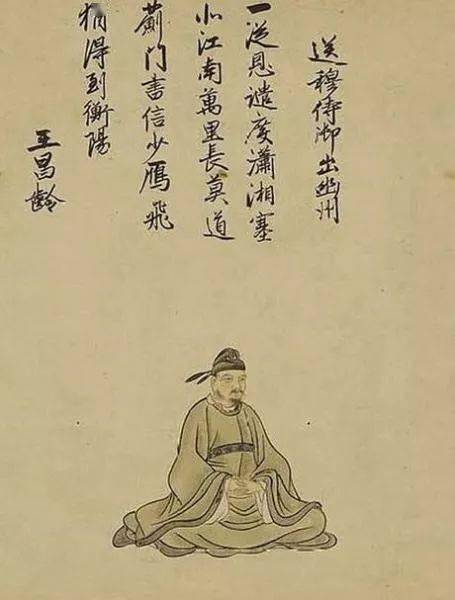 送穆侍御出幽州
一從恩譴度瀟湘塞
北江南萬里長莫道
薊門書信少雁飛
猶得到衡陽
王昌齡